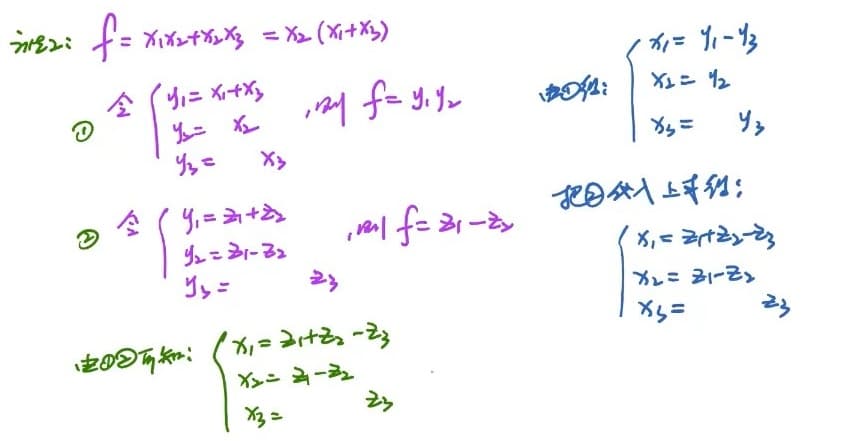 法2: f = x₁x₂+x₂x₃ = x₂(x₁+x₃)
① 令 { y₁ = x₁+x₃
y₂ = x₂
y₃ = x₃
, 则 f = y₁y₂
② 令 { y₁ = z₁+z₂
y₂ = z₁-z₂
y₃ = z₃
, 则 f = z₁-z₂
由①②可知: { x₁ = z₁+z₂-z₃
x₂ = z₁-z₂
x₃ = z₃
由①得: { x₁ = y₁-y₃
x₂ = y₂
x₃ = y₃
把②代入上式得:
{ x₁ = z₁+z₂-z₃
x₂ = z₁-z₂
x₃ = z₃